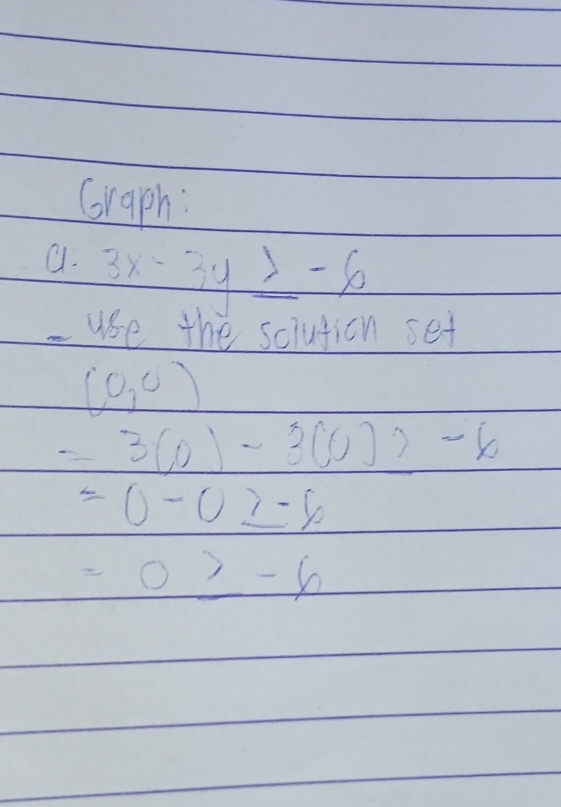 Graph:
a. 3x - 3y ≥ -6
- use the solution set
(0,0)
= 3(0) - 3(0) ≥ -6
= 0 - 0 ≥ -6
= 0 ≥ -6